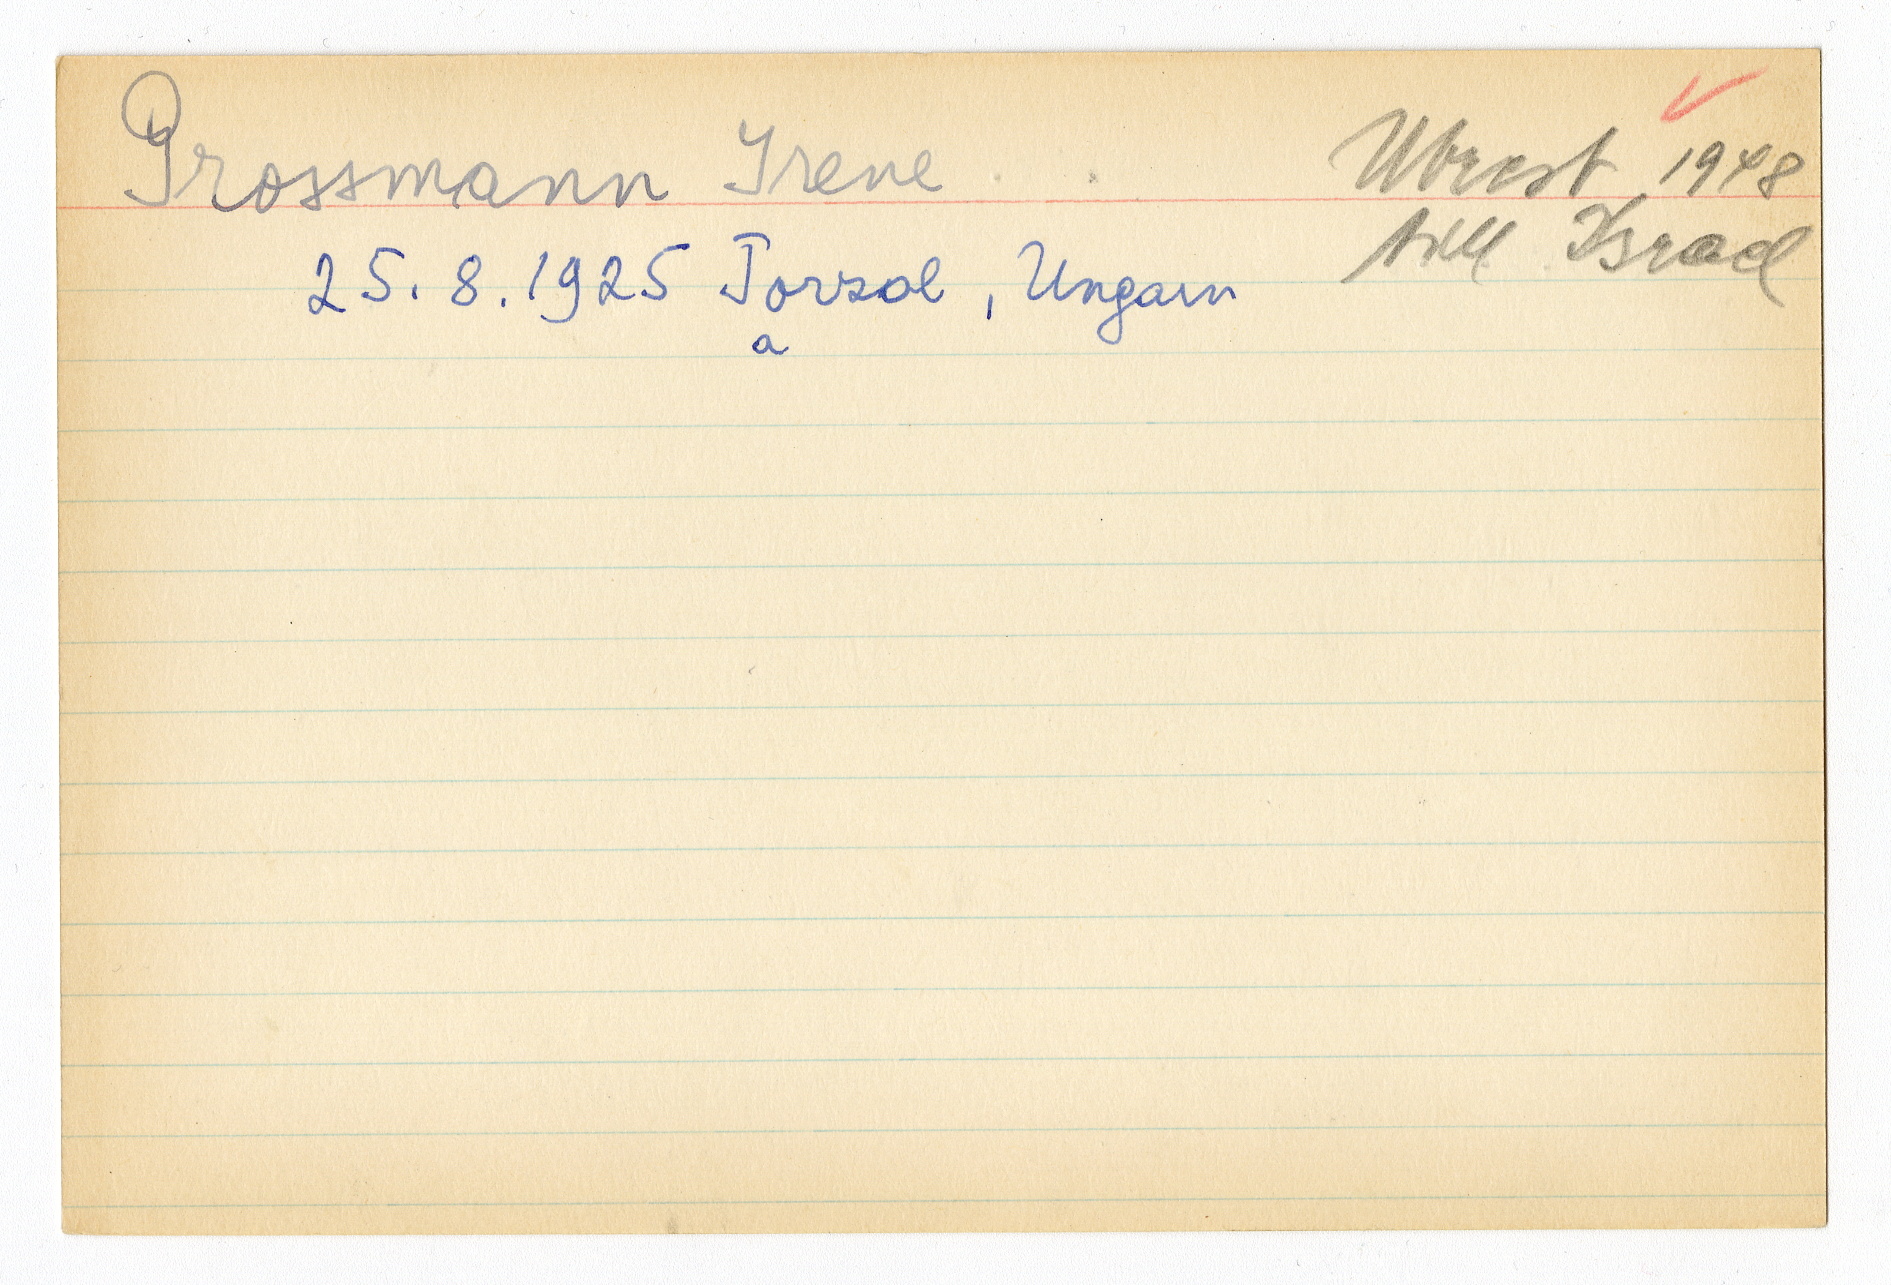 Grossmann Irene
Utrest 1948
till Israel
25.8.1925 Torzol, Ungarn
a